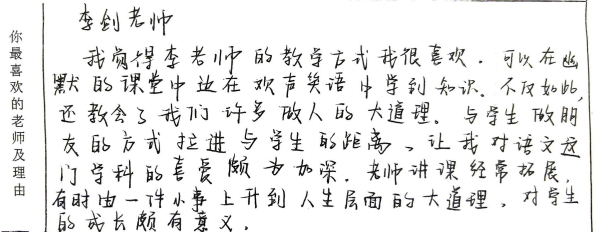 你最喜欢的老师及理由
李剑老师
我觉得李老师的教学方式我很喜欢．可以在幽
默的课堂中边在欢声笑语中学到知识．不仅如此，
还教会了我们许多做人的大道理．与学生做朋
友的方式拉进与学生的距离、让我对语文这
门学科的喜爱颇为加深．老师讲课经常拓展，
有时由一件小事上升到人生层面的大道理．对学生
的成长颇有意义．